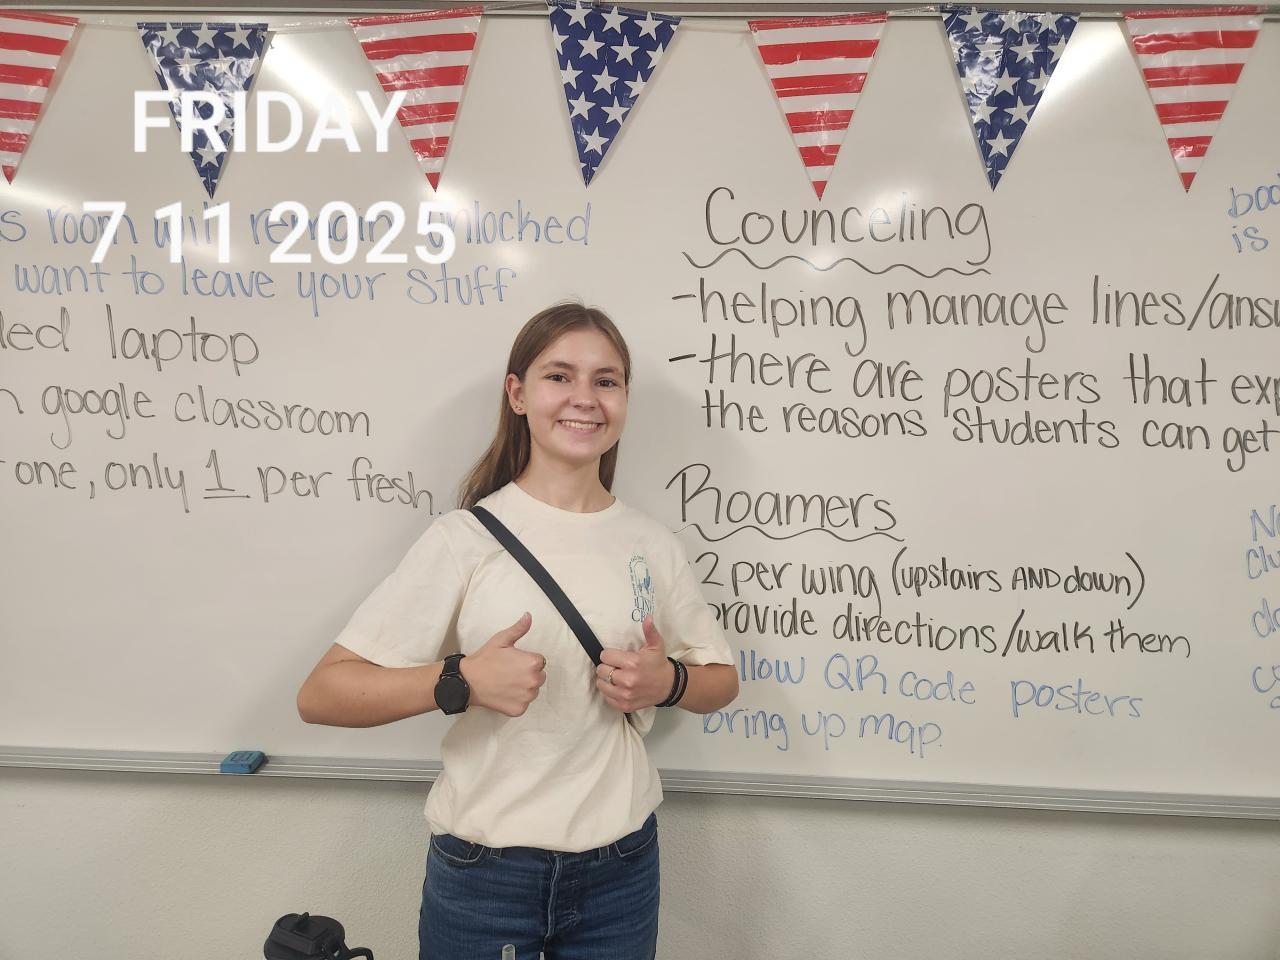 FRIDAY
7 11 2025
s room will remain unlocked
want to leave your stuff
led laptop
google classroom
one, only 1 per fresh.
Counceling
-helping manage lines/ans
-there are posters that exp
the reasons students can get
Roamers
2 per wing (upstairs AND down)
provide directions/walk them
llow QR code posters
bring up map.
is